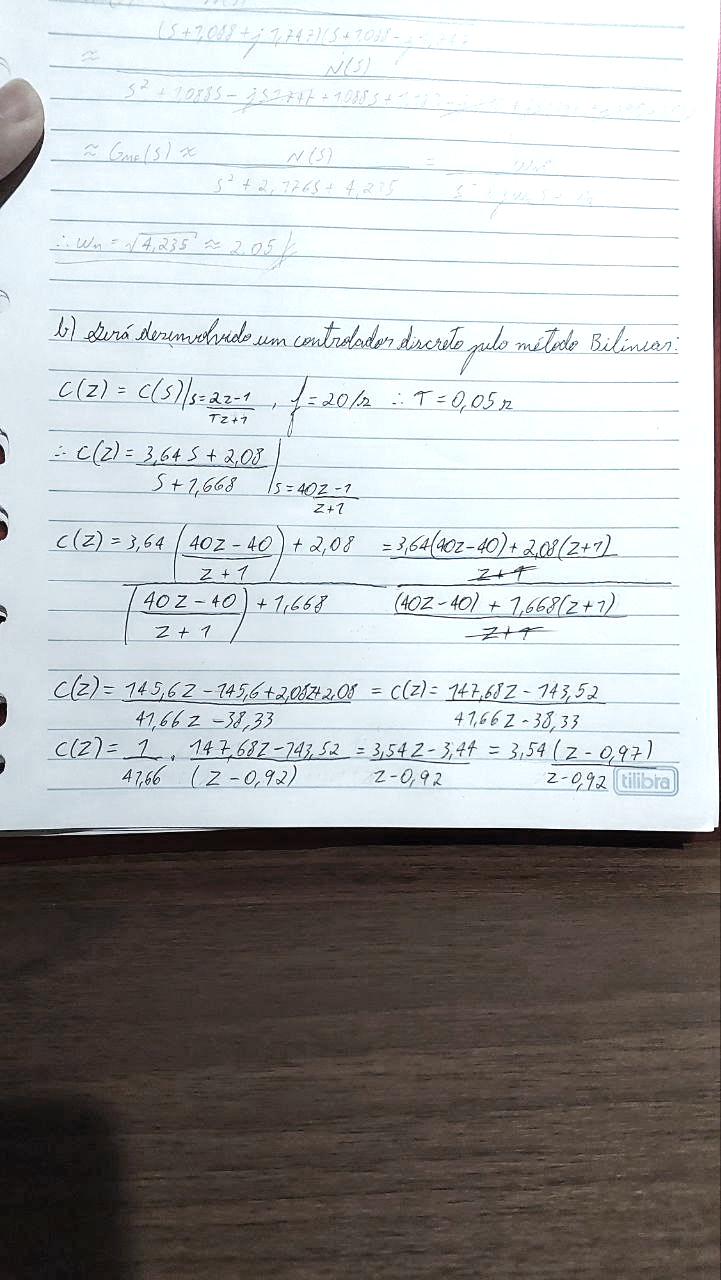 (S+1,088+j1,747)(S+1,088-j1,747
≈ N(S)
S² + 1,088S - jS1,747 + 1,088S +
≈ Gmf(S) ≈ N(S) / S² + 2,176S + 4,235 =
∴ wn = √4,235 ≈ 2,05
b) Será desenvolvido um controlador discreto pelo método Bilinear:
C(Z) = C(S)|S=2/T z-1/z+1 , f = 20/s ∴ T = 0,05s
∴ C(Z) = 3,64 S + 2,08 / S + 1,668 |S=40 Z-1/Z+1
C(Z) = 3,64 (40Z-40 / Z+1) + 2,08 / (40Z-40 / Z+1) + 1,668 = 3,64(40Z-40) + 2,08(Z+1) / Z+1 / (40Z-40) + 1,668(Z+1) / Z+1
C(Z) = 145,6Z - 145,6 + 2,08Z + 2,08 / 41,66Z - 38,33 = C(Z) = 147,68Z - 143,52 / 41,66Z - 38,33
C(Z) = 1/41,66 . 147,68Z - 143,52 / (Z - 0,92) = 3,54Z - 3,44 / Z - 0,92 = 3,54 (Z - 0,97) / Z - 0,92
tilibra